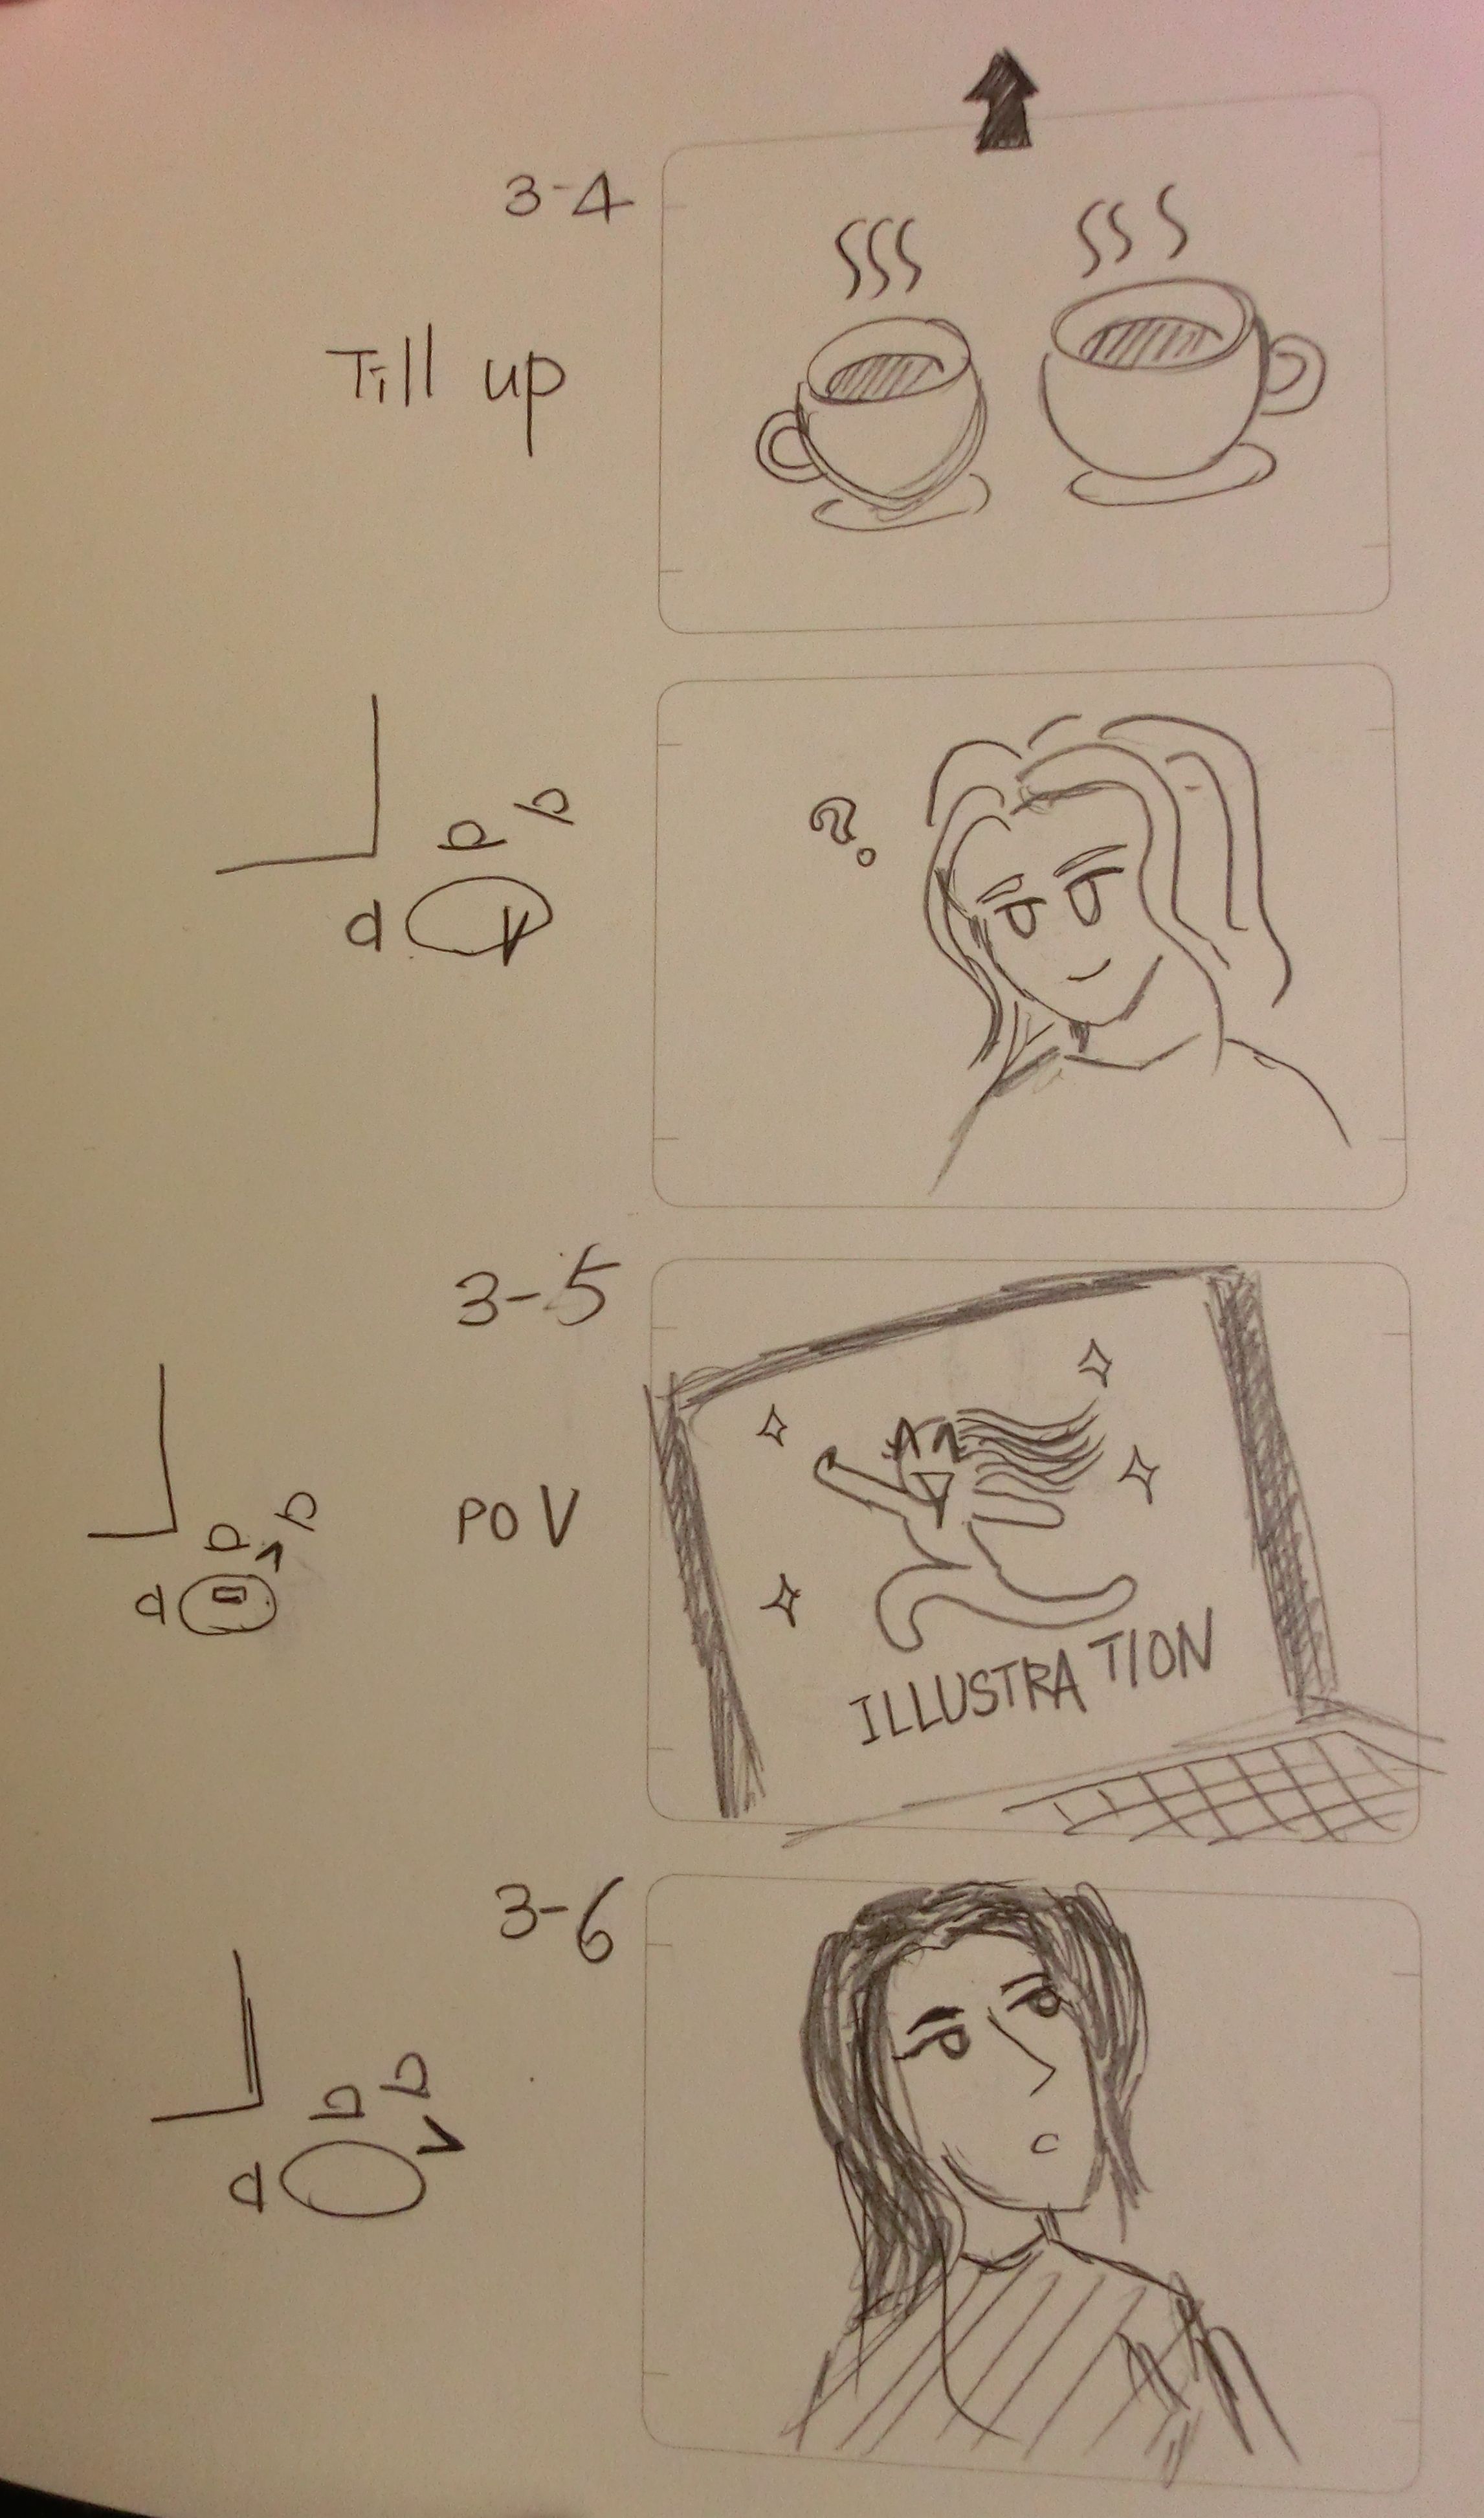 3-4
Till up
?
3-5
POV
ILLUSTRATION
3-6